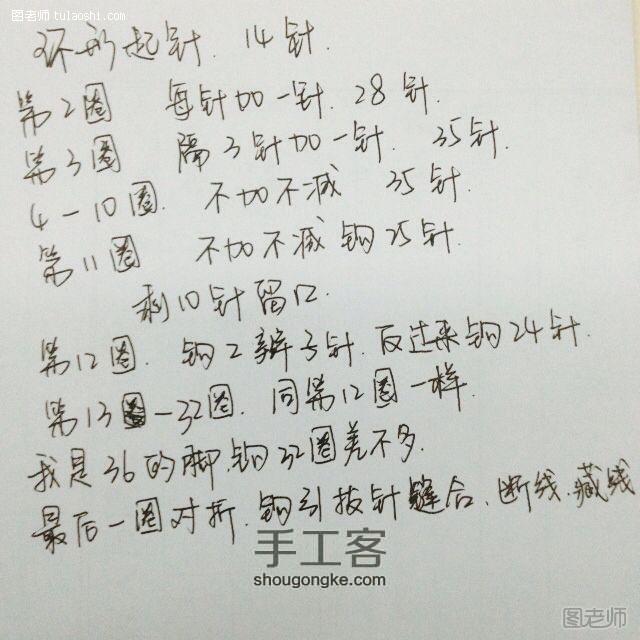 图老师 tulaoshi.com
环形起针. 14针.
第2圈 每针加一针. 28针.
第3圈 隔3针加一针. 35针.
4-10圈. 不加不减 35针.
第11圈 不加不减钩25针.
剩10针留口.
第12圈. 钩2辫子针. 反过来钩24针.
第13圈-32圈. 同第12圈一样.
我是36的脚,钩32圈差不多.
最后一圈对折.钩引拔针缝合、断线.藏线
手工客
shougongke.com
图老师